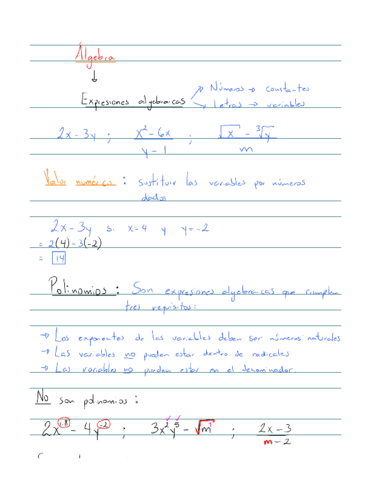 Álgebra
↓
Expresiones algebraicas → Números → constantes
→ Letras → variables
2x - 3y ; x² - 6x / y - 1 ; √x - ∛y / m
Valor numérico : sustituir las variables por números
dados
2x - 3y si x=4 y y=-2
= 2(4) - 3(-2)
= 14
Polinomios : Son expresiones algebraicas que cumplen
tres requisitos:
→ Los exponentes de las variables deben ser números naturales
→ Las variables no pueden estar dentro de radicales
→ Las variables no pueden estar en el denominador.
No son polinomios :
; 3x²y⁵ - √m ; 2x - 3 / m - 2